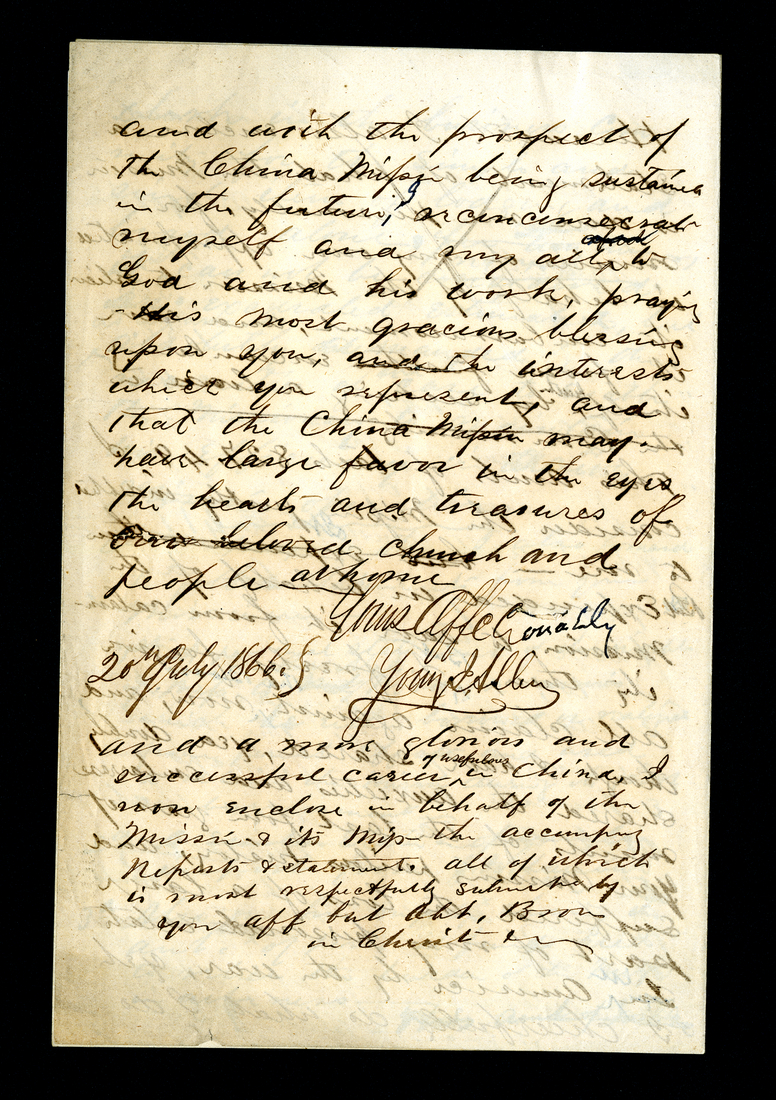 and with the prospect of
the China Mission being sustained
in the future, I reconsecrate
myself and my all to
God and his work, praying
His most gracious blessing
upon you, and the interests
which you represent, and
that the China Mission may
have large favor in the eyes
the hearts and treasures of
our beloved church and
people at home
Yours Affectionately
20th July 1866. Young J. Allen
and a more glorious and
successful career of usefulness in China, I
now enclose in behalf of the
Mission & its Miss the accompg
Reports & statements. all of which
is most respectfully submitted by
your aff but Bro
in Christ